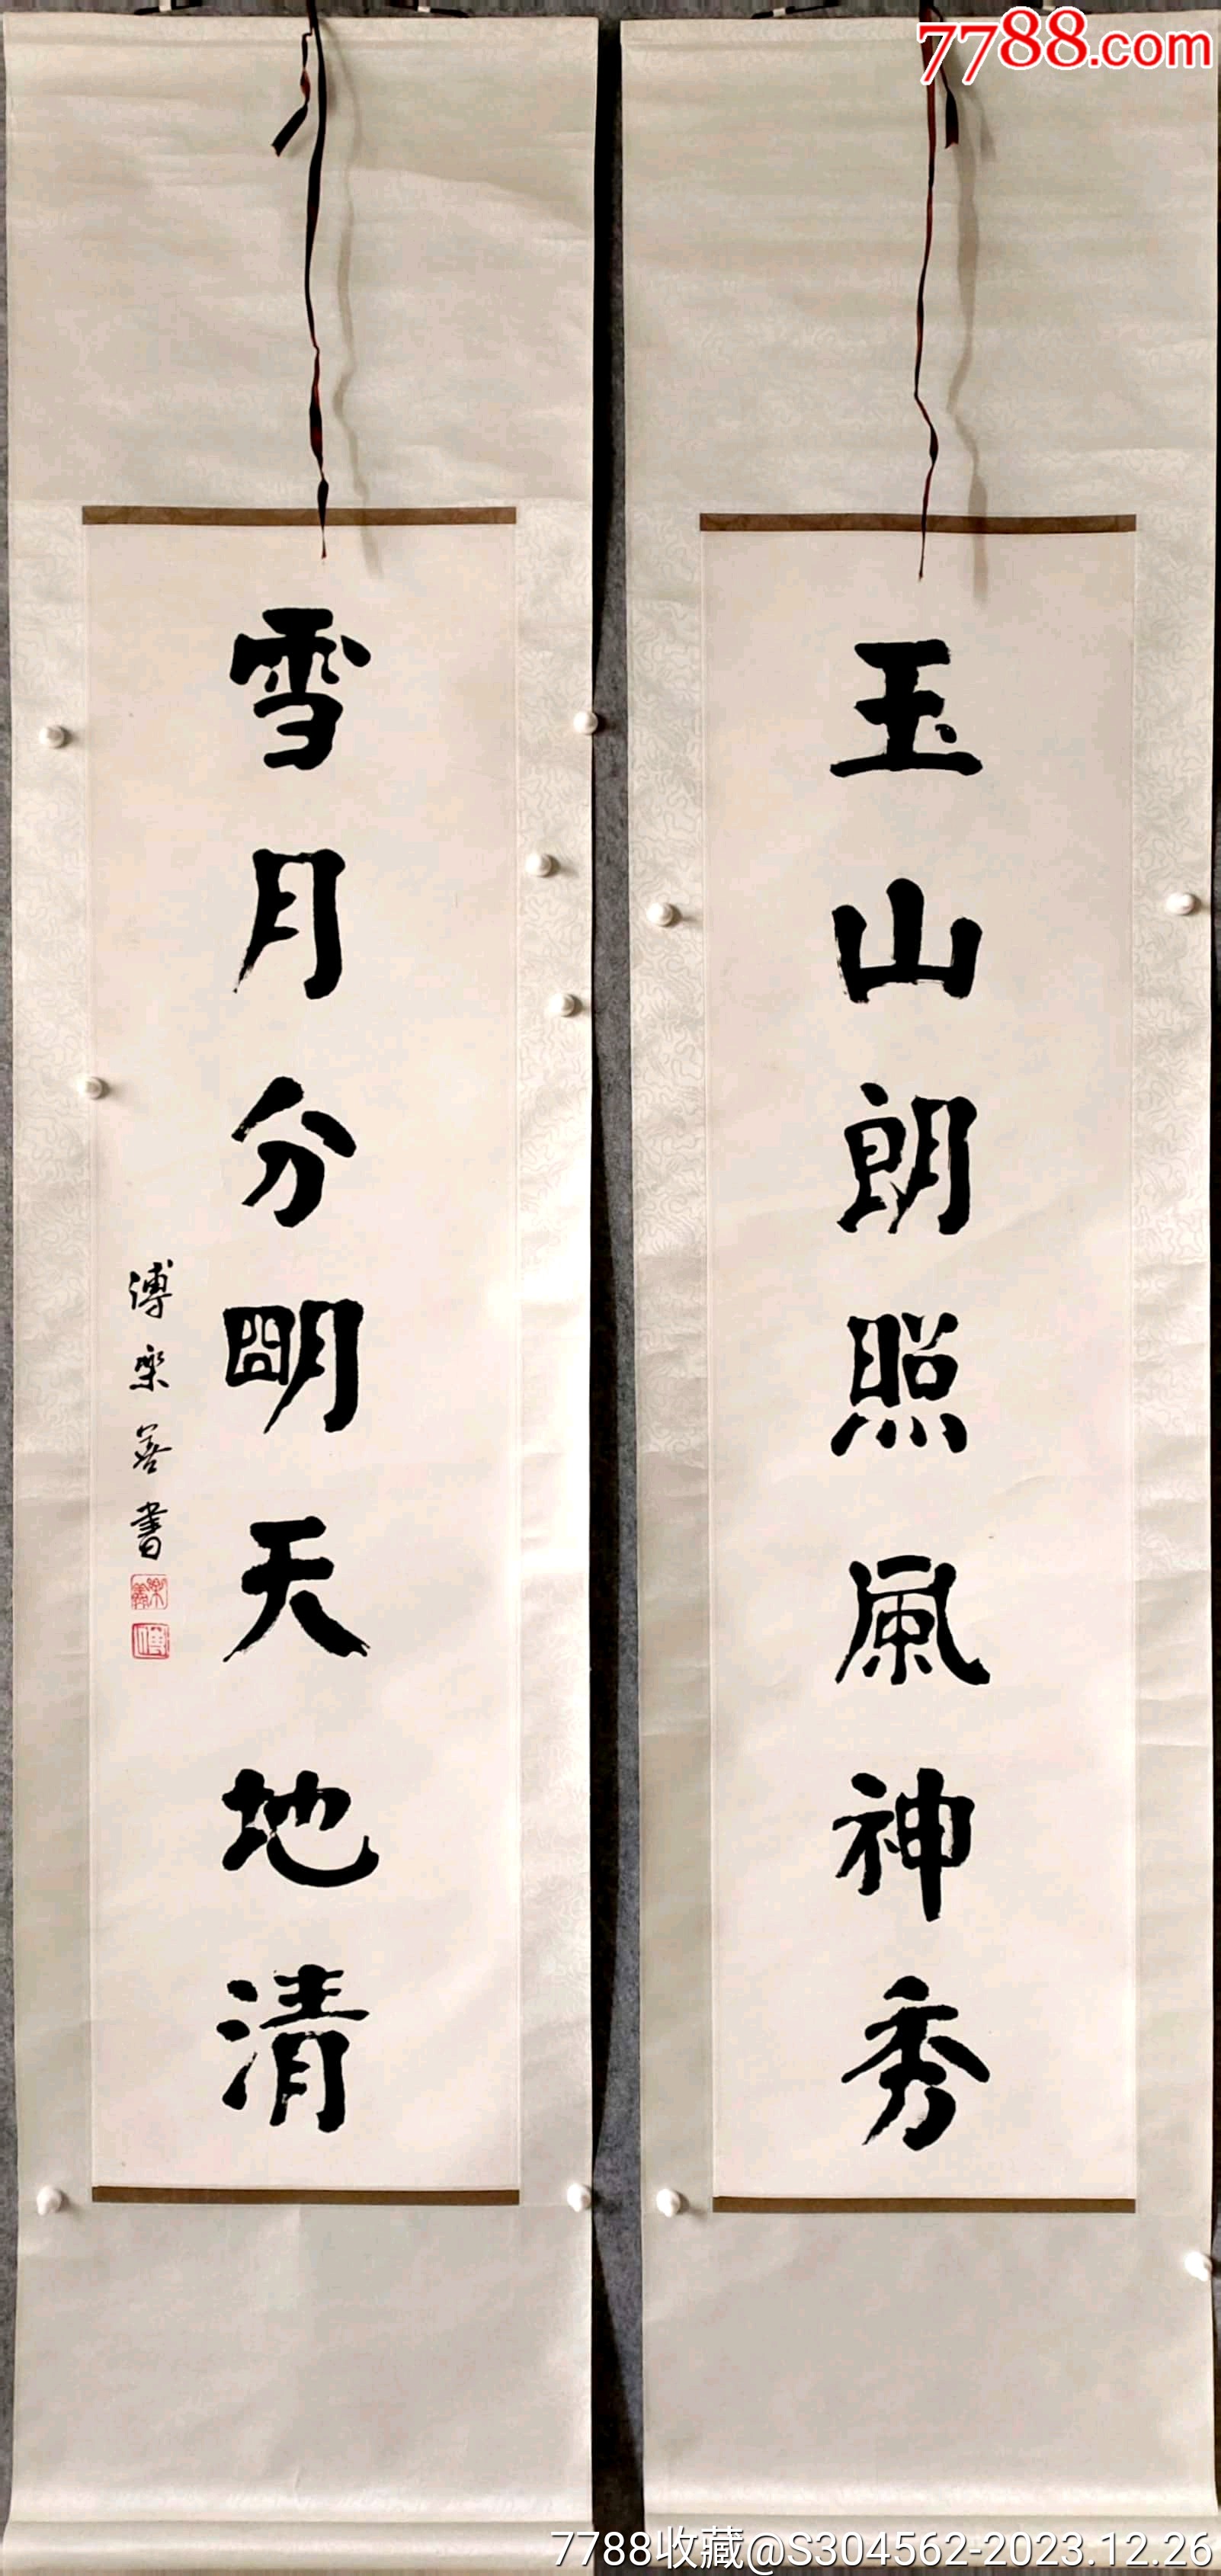 7788.com
玉山朗照風神秀
雪月分朙天地清
溥樂善書
7788收藏@S304562-2023.12.26